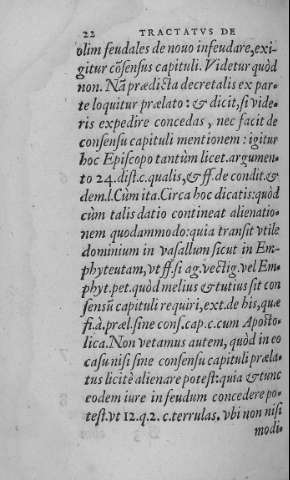 22 TRACTATVS DE
olim feudales de nouo infeudare, exi-
gitur cõsensus capituli. Videtur quòd
non. Nã prædicta decretalis ex par-
te loquitur prælato: & dicit, si vide-
ris expedire concedas, nec facit de
consensu capituli mentionem: igitur
hoc Episcopo tantùm licet. argumen-
to 24. dist. c. qualis, & ff. de condit. &
dem. l. Cùm ita. Circa hoc dicatis: quòd
cùm talis datio contineat alienatio-
nem quodammodo: quia transit vtile
dominium in vasallum sicut in Em-
phyteutam, vt ff. si ag. vectig. vel Em-
phyt. pet. quòd melius & tutius sit con
sensũ capituli requiri, ext. de his, quæ
fi. à præl. sine cons. cap. c. cum Aposto-
lica. Non vetamus autem, quòd in eo
casu nisi sine consensu capituli præla-
tus licitè alienare potest: quia & tunc
eodem iure in feudum concedere po-
test. vt 12. q. 2. c. terrulas. vbi non nisi
modi-